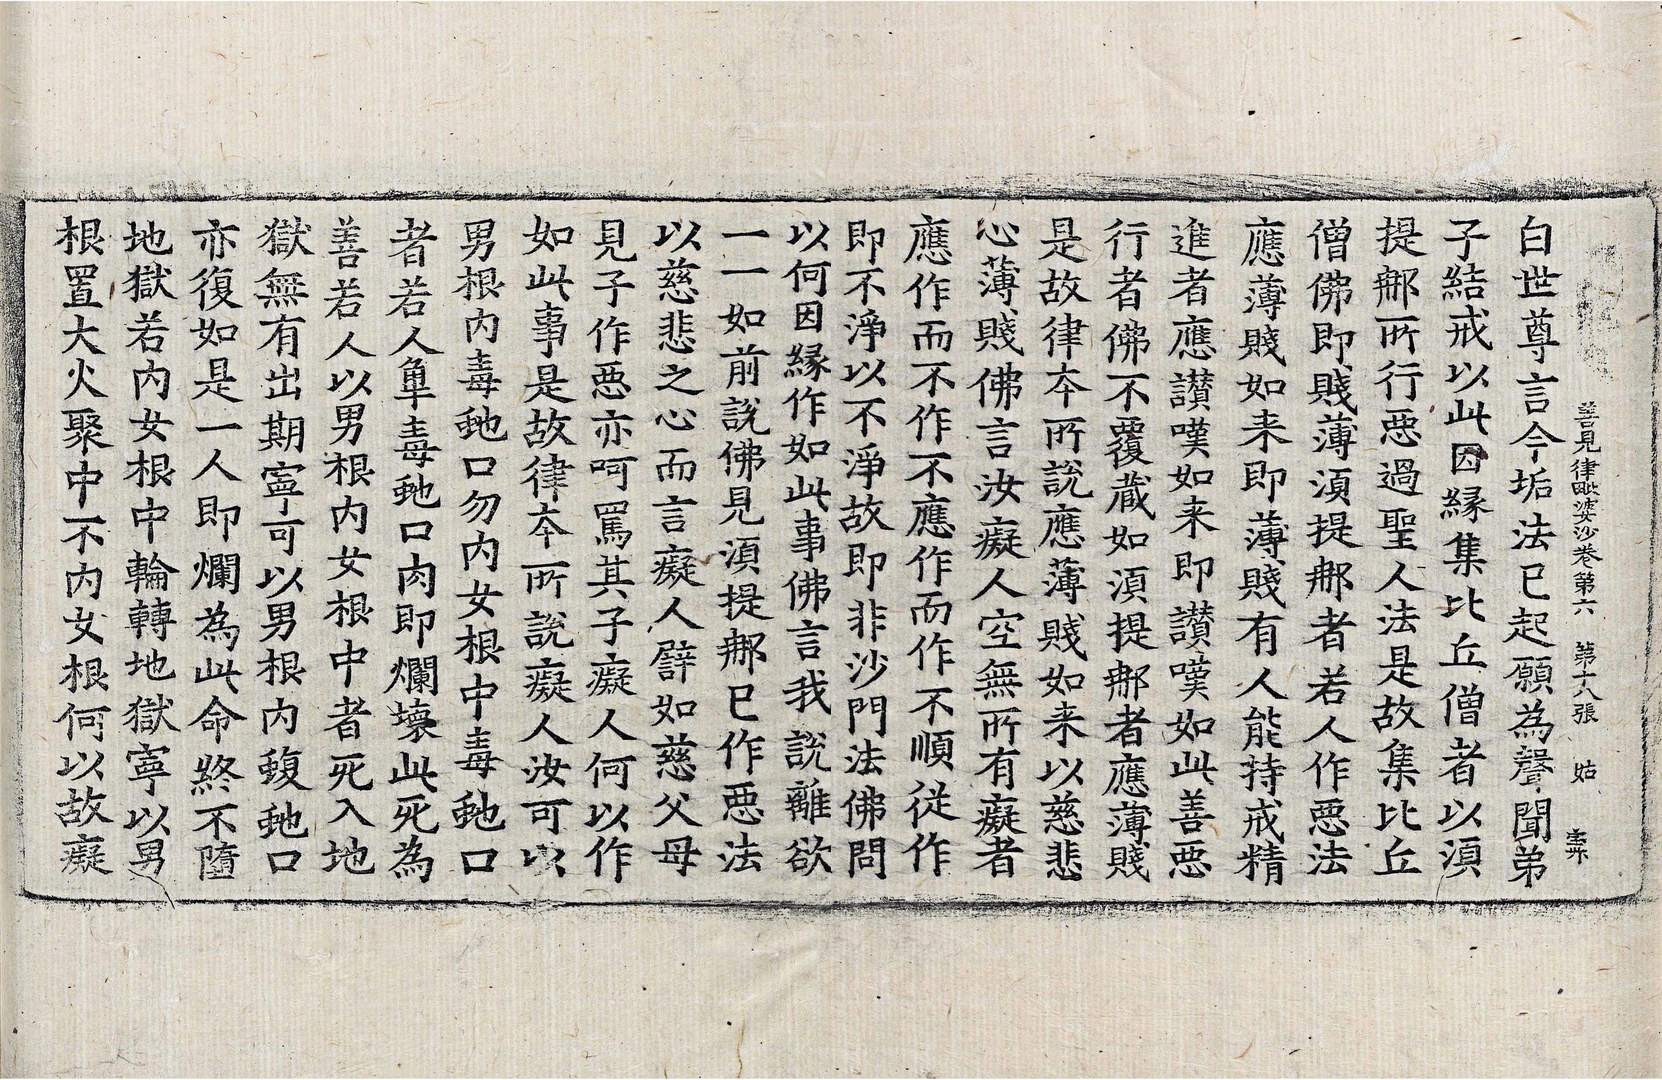 善見律毗婆沙卷第六　第十八張　姑
白世尊言今垢法已起願為聲聞弟
子結戒以此因緣集比丘僧者以湏
提𨚗所行惡過聖人法是故集比丘
僧佛即賤薄湏提𨚗者若人作惡法
應薄賤如来即薄賤有人能持戒精
進者應讃嘆如来即讃嘆如此善惡
行者佛不覆蔵如湏提𨚗者應薄賤
是故律夲所說應薄賤如来以慈悲
心薄賤佛言汝癡人空無所有癡者
應作而不作不應作而作不順從作
即不淨以不淨故即非沙門法佛問
以何因緣作如此事佛言我說離欲
一一如前說佛見湏提𨚗已作惡法
以慈悲之心而言癡人譬如慈父母
見子作惡亦呵罵其子癡人何以作
如此事是故律夲所說癡人汝可以
男根內毒虵口勿內女根中毒虵口
者若人犫毒虵口肉即爛壞此死為
善若人以男根內女根中者死入地
獄無有出期寧可以男根內蝮虵口
亦復如是一人即爛為此命終不墮
地獄若內女根中輪轉地獄寧以男
根置大火聚中不內女根何以故癡